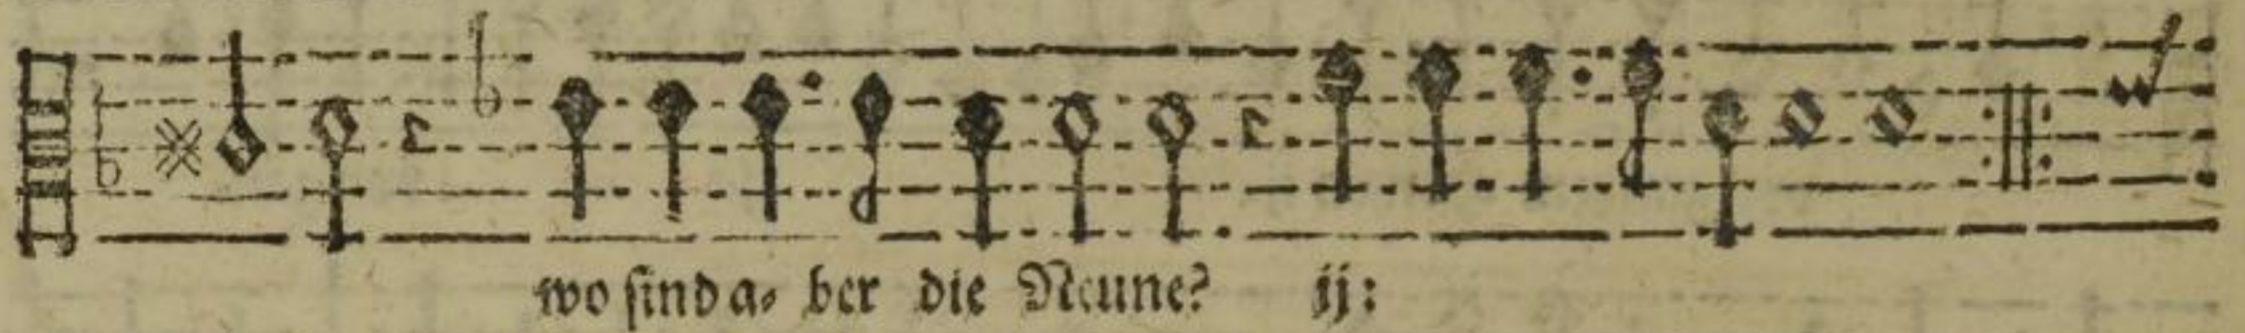 wo ſind a⸗ ber die Neune? ij: